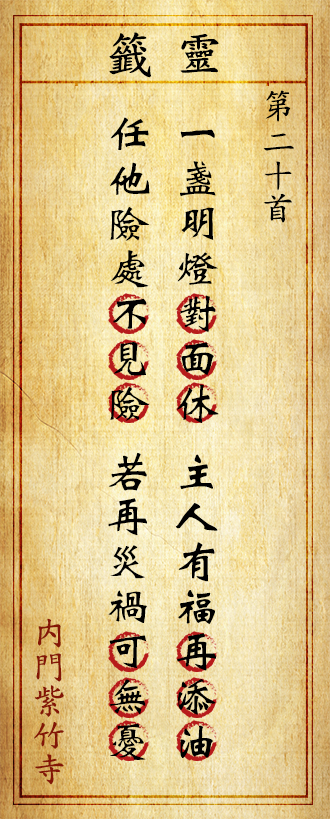 靈籤
第二十首
一盞明燈對面休
主人有福再添油
任他險處不見險
若再災禍可無憂
内門紫竹寺